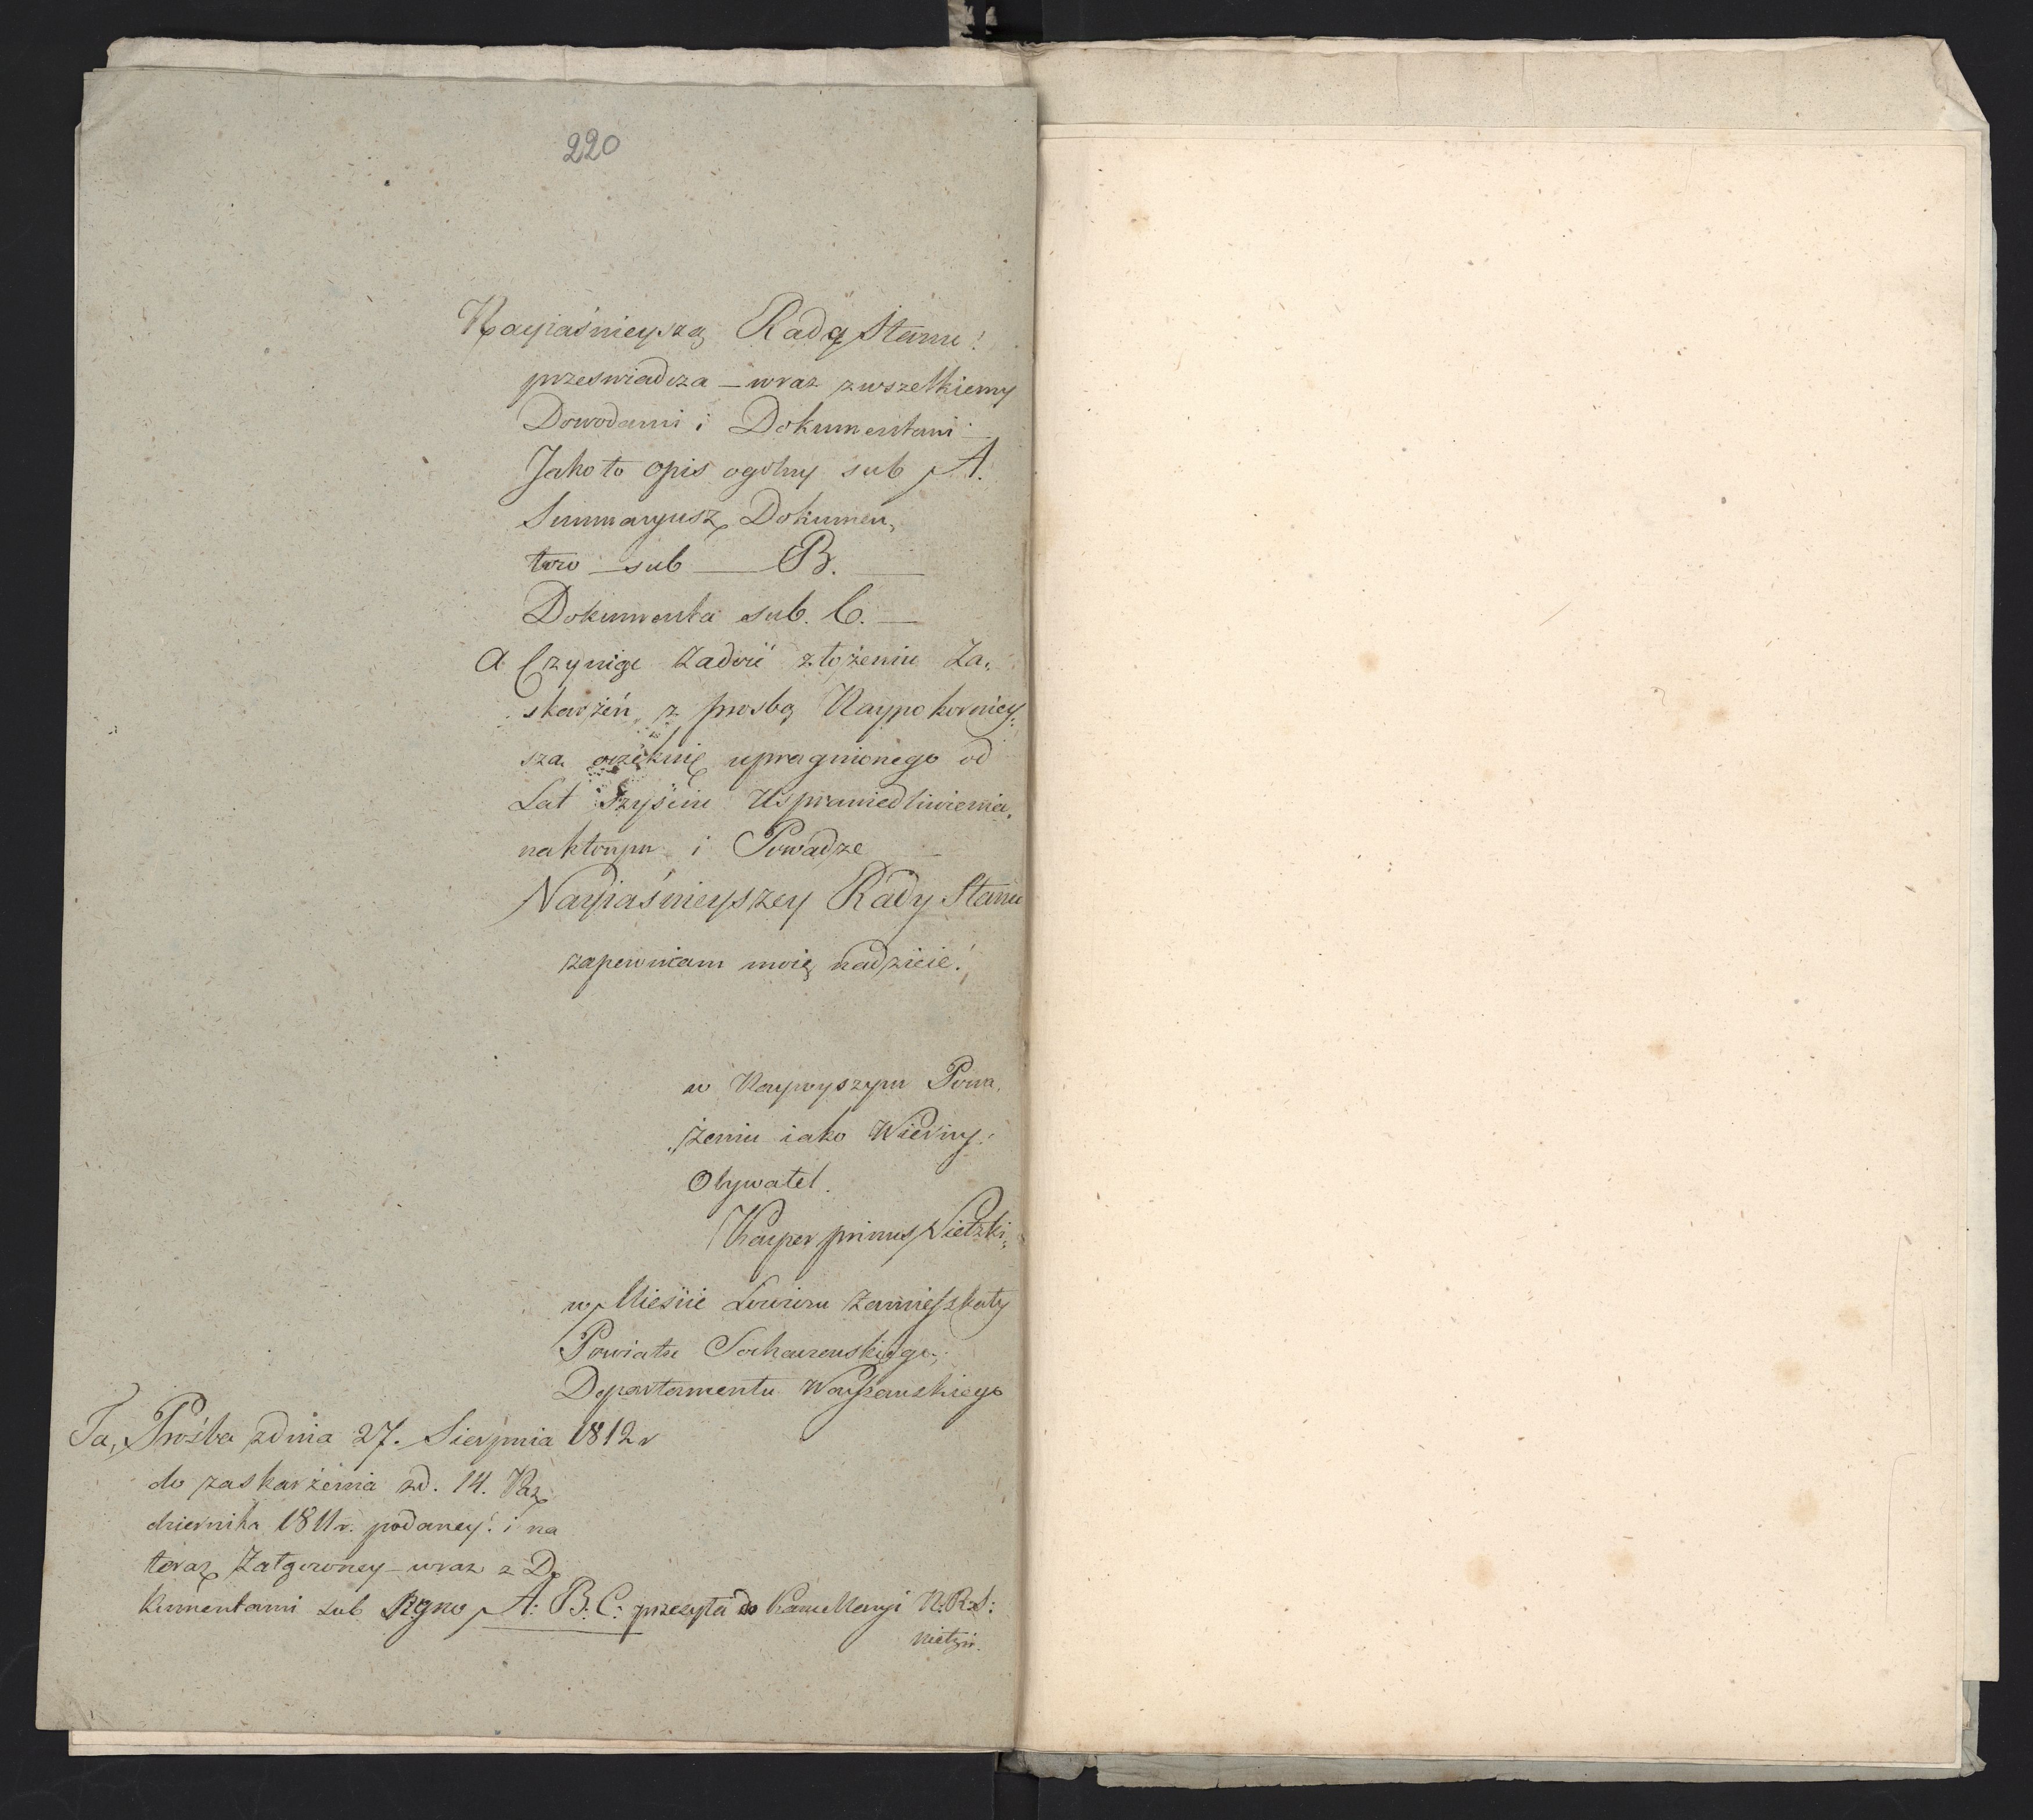 220
Nayiaśnieyszą Radę Stanu!
przeswiadcza – wraz zwszelkiemy
Dowodami i Dokumentami –
Jako to opis ogólny sub A.
Summaryusz Dokumen,
tow – sub — B. —
Dokumenta sub. C. —
a Czyniąc zadość złożeniu Za,
skarżeń z prosbą Naypokorniey,
sza
upragnionego od
Lat Usprawiedliwienia,
i Powadze —
Nayiaśnieyszey Rady Stanu
zapewniam moię nadzieię!
w Naywyszym Powa,
żeniu iako Wierny
Obywatel.
Kasper primus Nietzki
w Mieście Łowiczu Zamieszkały
Powiatu Sochaczewskiego,
Departamentu Warszawskiego
Ta, Prośba zdnia 27. Sierpnia 1812 r
do zaskarżenia zd. 14. Paz
dziernika 1811 r. podaney: i na
teraz Załączoney – wraz z Do
kumentami sub Signo A: B: C: przesyła do Kancellaryi N: R: S: